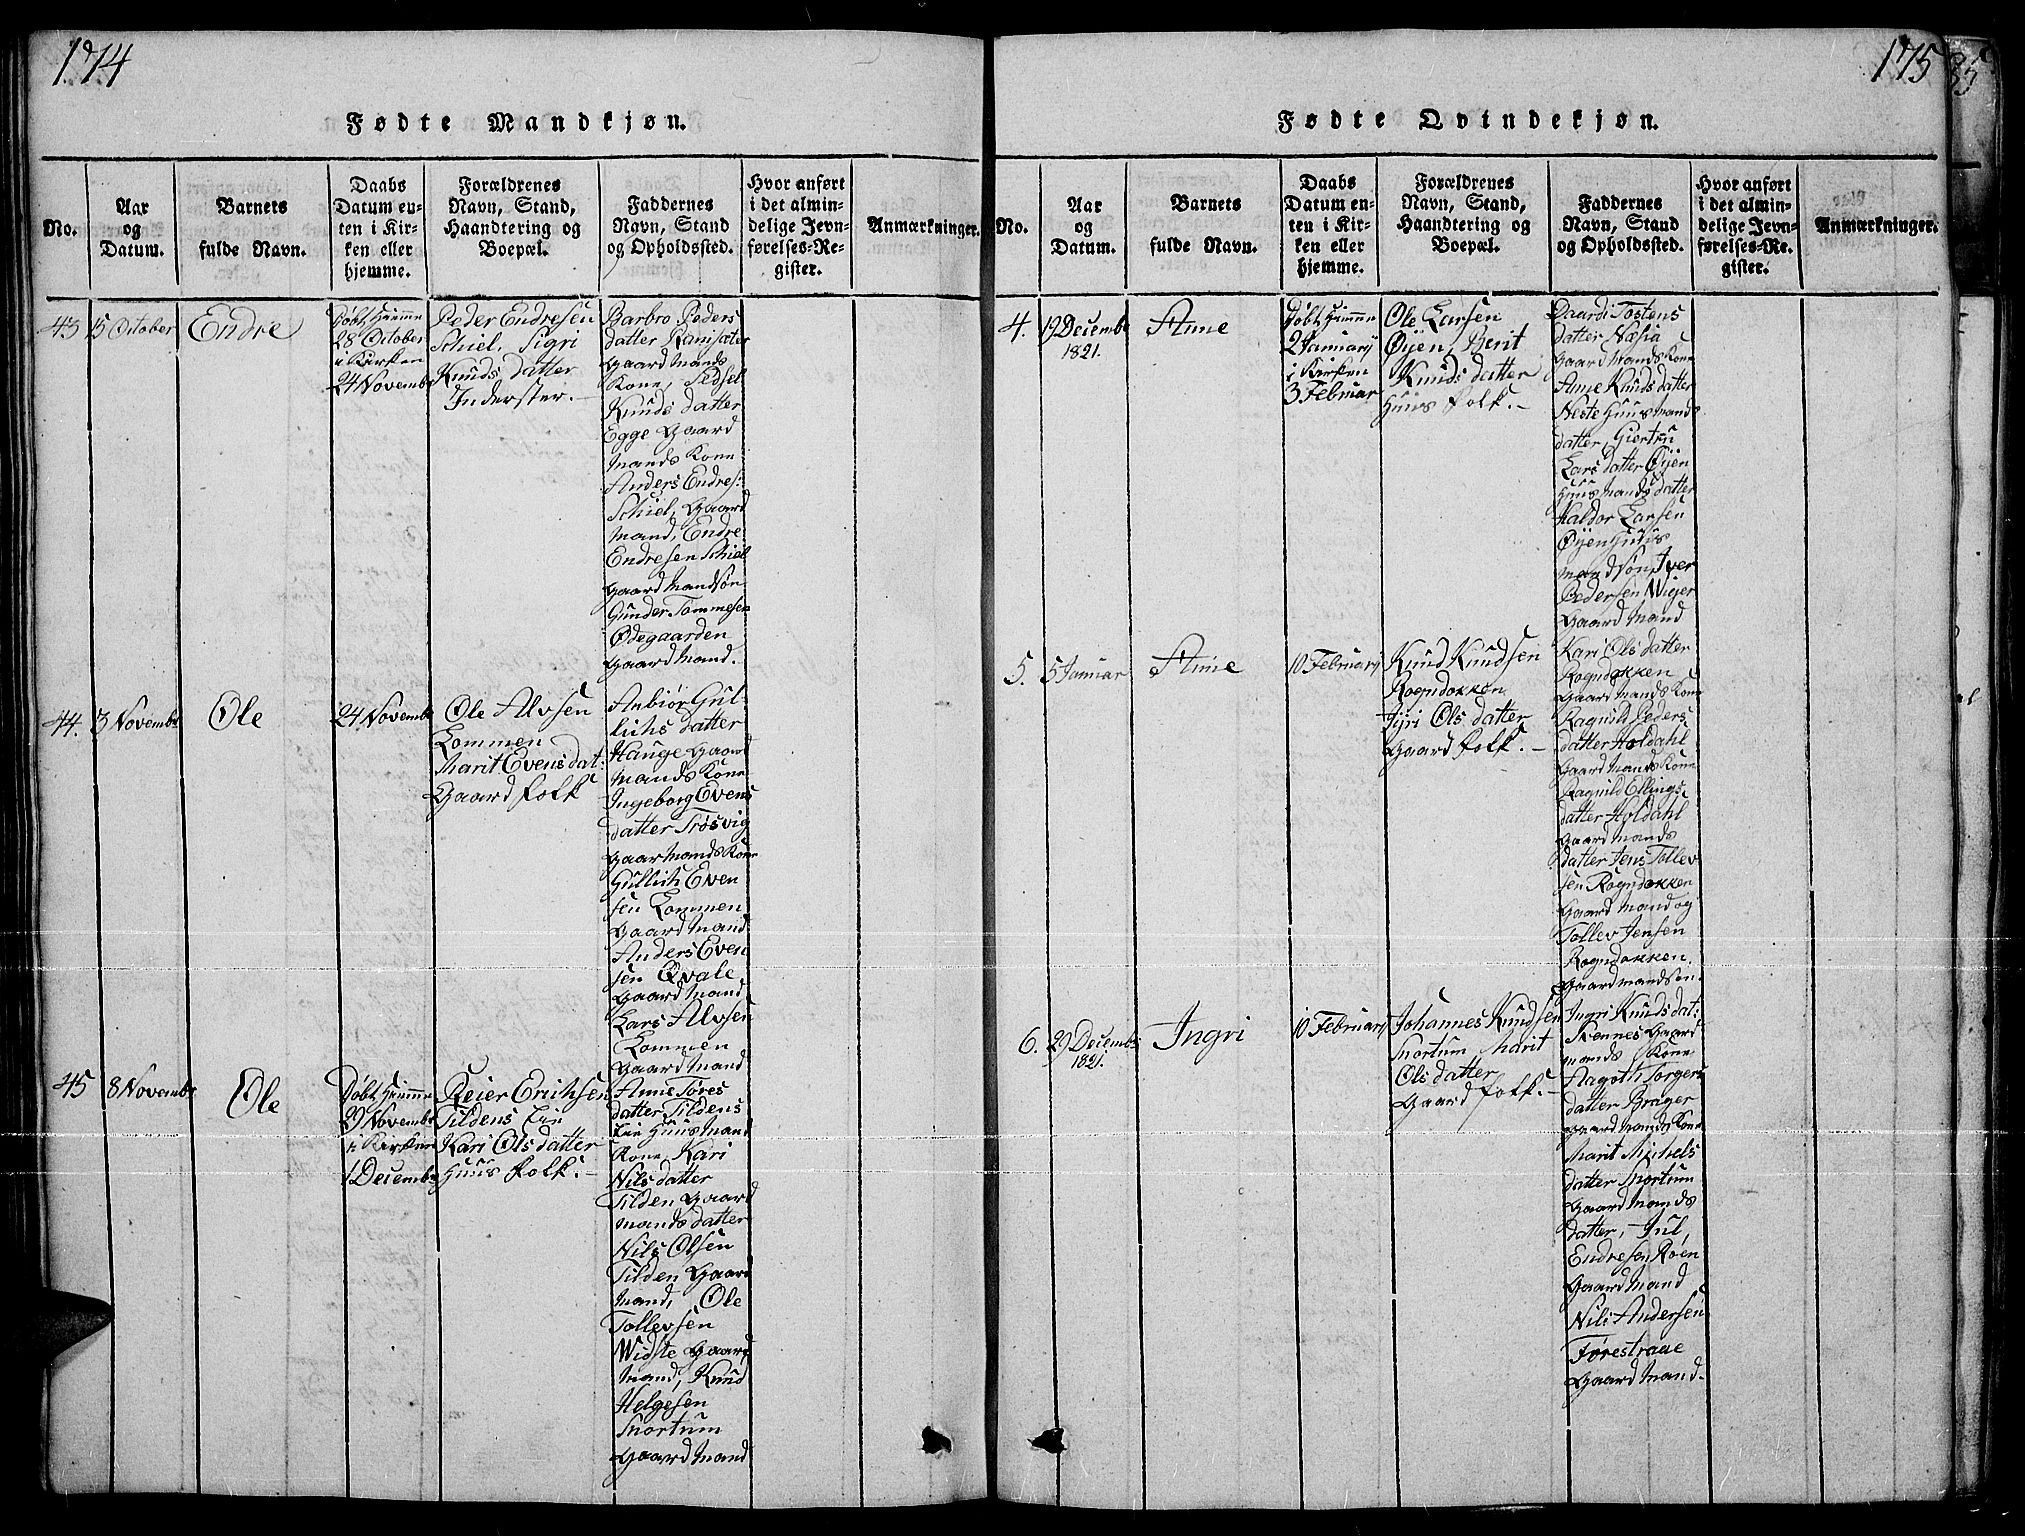 174
Fødte Mandkjøn.
No.
Aar
og
Datum.
Barnets
fulde Navn.
Daabs
Datum en-
ten i Kir-
ken eller
hjemme.
Forældrenes
Navn, Stand,
Haandtering og
Boepæl.
Faddernes
Navn, Stand
og Opholdssted.
Hvor anført
i det almin-
delige Jevn-
førelses-Re-
gister.
Anmærkninger.
43
15 October
Endre
Døbt hiemme
28 October
i Kirken
24 Novembr
Peder Endresen
Schiel, Sigri
Knuds datter
Inderster.-
Barbro Peders
datter Ramsäter
Gaard Mands
Kone, Sidsel
Knuds datter
Egge Gaard
Mands Kone
Anders Endres:
Schiel, Gaard
Mand, Endre
Endresen Schiel
Gaard Mandsøn
Gunder Tommesen
Ødegaarden
Gaard Mand.
44.
3 Novembr
Ole
24 Novembr
Ole Alvsen
Lommen
Marit Evens dat:
Gaard folk
Anbiør Gul-
lichs datter
Hauge Gaard
Mands Kone
Ingeborg Evens
datter Trøsvig
Gaar Mands Kone
Gullich Even
sen Lommen
Gaard Mand
Anders Even
sen Qvale
Gaard Mand
Lars Alvsen
Lommen
Gaard Mand
45
8 Novembr
Ole
Døbt hiemme
29 Novembr
i Kirken
1 Decembr
Reier Erichsen
Tildens Eie
Kari Ols datter
Huus folk.-
Anne Tores
datter Tildens
Eie Huus Mand
Kone, Kari
Nils datter
Tilden Gaard
Mands datter
Nils Olsen
Tilden Gaard
Mand, Ole
Tollevsen
Widste Gaard
Mand, Knud
Helgesen
Snortum
Gaard Mand
175
Fødte Qvindekjøn.
No.
Aar
og
Datum.
Barnets
fulde Navn.
Daabs
Datum en-
ten i Kir-
ken eller
hjemme.
Forældrenes
Navn, Stand,
Haandtering og
Boepæl.
Faddernes
Navn, Stand
og Opholdssted.
Hvor anført
i det almin-
delige Jevn-
førelses-Re-
gister.
Anmærkninger.
4.
19 Decembr
1821.
Anne
Døbt hiemme
2 Januarij
i Kirken
3 Februar
Ole Larsen
Øijen, Berit
Knuds datter
Huus folk.-
Daardi Tostens
datter Næsia
Gaard Mands Kone
Anne Knuds datter
Neste Huusmands
datter, Giertru
Lars datter Øijen
Huus Mands datter
Haldor Larsen
Øijen Huus
mand Søn, Iver
Pedersen Wiger
Gaard Mand
5.
5 Januar
Anne
10 Februarij
Knud Knudsen
Rogndokken
Sigri Ols datter
Gaard folk.-
Kari Ols datter
Rogndokken
Gaard Mands Kone
Ragnild Peders
datter Holdahl
Gaard Mands Kone
Ragnild Ellings
datter Holdahl
Gaard Mands
datter Jens Tollev
sen Rogndokken
Gaard Mand og
Tollev Jensen
Rogndokken,
Gaard mandsøn.
6.
29 Decembr
1821.
Ingri
10 Februarij
Johannes Knudsen
Snortum Marit
Ols datter
Gaard folk.-
Ingri Knuds dat:
Svennes Gaard
mands Kone
Aagoth Torgers
datter Brager
Gaard Mands Kone
Marit Michels
datter Snortum
Gaard Mands
datter, Jul,
Endresen Røen
Gaard Mand
Nils Andersen
Førestraae
Gaard Mand.